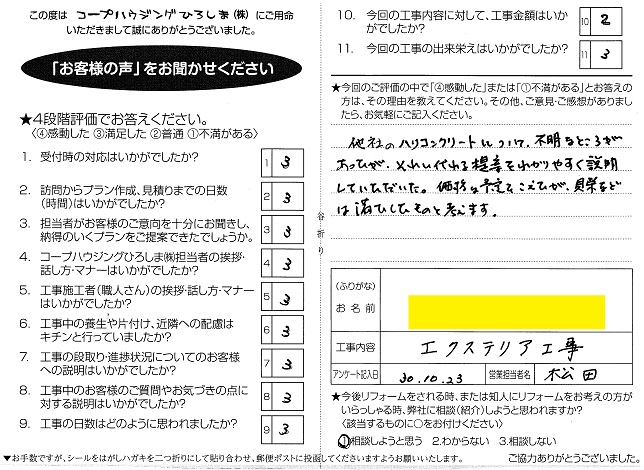 この度は コープハウジングひろしま(株) にご用命
いただきまして誠にありがとうございました。
「お客様の声」をお聞かせください
★4段階評価でお答えください。
〈④感動した ③満足した ②普通 ①不満がある〉
1. 受付時の対応はいかがでしたか?
1 3
2. 訪問からプラン作成、見積りまでの日数
(時間)はいかがでしたか?
2 3
3. 担当者がお客様のご意向を十分にお聞きし、
納得のいくプランをご提案できたでしょうか。
3 3
4. コープハウジングひろしま㈱担当者の挨拶・
話し方・マナーはいかがでしたか?
4 3
5. 工事施工者(職人さん)の挨拶・話し方・マナー
はいかがでしたか?
5 3
6. 工事中の養生や片付け、近隣への配慮は
キチンと行っていましたか?
6 3
7. 工事の段取り・進捗状況についてのお客様
への説明はいかがでしたか?
7 3
8. 工事中のお客様のご質問やお気づきの点に
対する説明はいかがでしたか?
8 3
9. 工事の日数はどのように思われましたか?
9 3
谷折り
10. 今回の工事内容に対して、工事金額はいか
がでしたか?
10 2
11. 今回の工事の出来栄えはいかがでしたか?
11 3
★今回のご評価の中で「④感動した」または「①不満がある」とお答えの
方は、その理由を教えてください。その他、ご意見・ご感想がありまし
たら、お気軽にご記入ください。
他社のハリコンクリートについて、不明なところが
あったが、それに代わる提案をわかりやすく説明
していただいた。価格は予定をこえたが、見栄など
は満足したものと考えます。
(ふりがな)
お名前
工事内容
エクステリア工事
アンケート記入日
30.10.23
営業担当者名
松田
★今後リフォームをされる時、または知人にリフォームをお考えの方が
いらっしゃる時、弊社に相談(紹介)しようと思われますか?
〈該当するものに○をお付けください〉
①相談しようと思う 2.わからない 3.相談しない
▼お手数ですが、シールをはがしハガキを二つ折りにして貼り合わせ、郵便ポストに投函してくださいますようお願いいたします。
ご協力ありがとうございました。